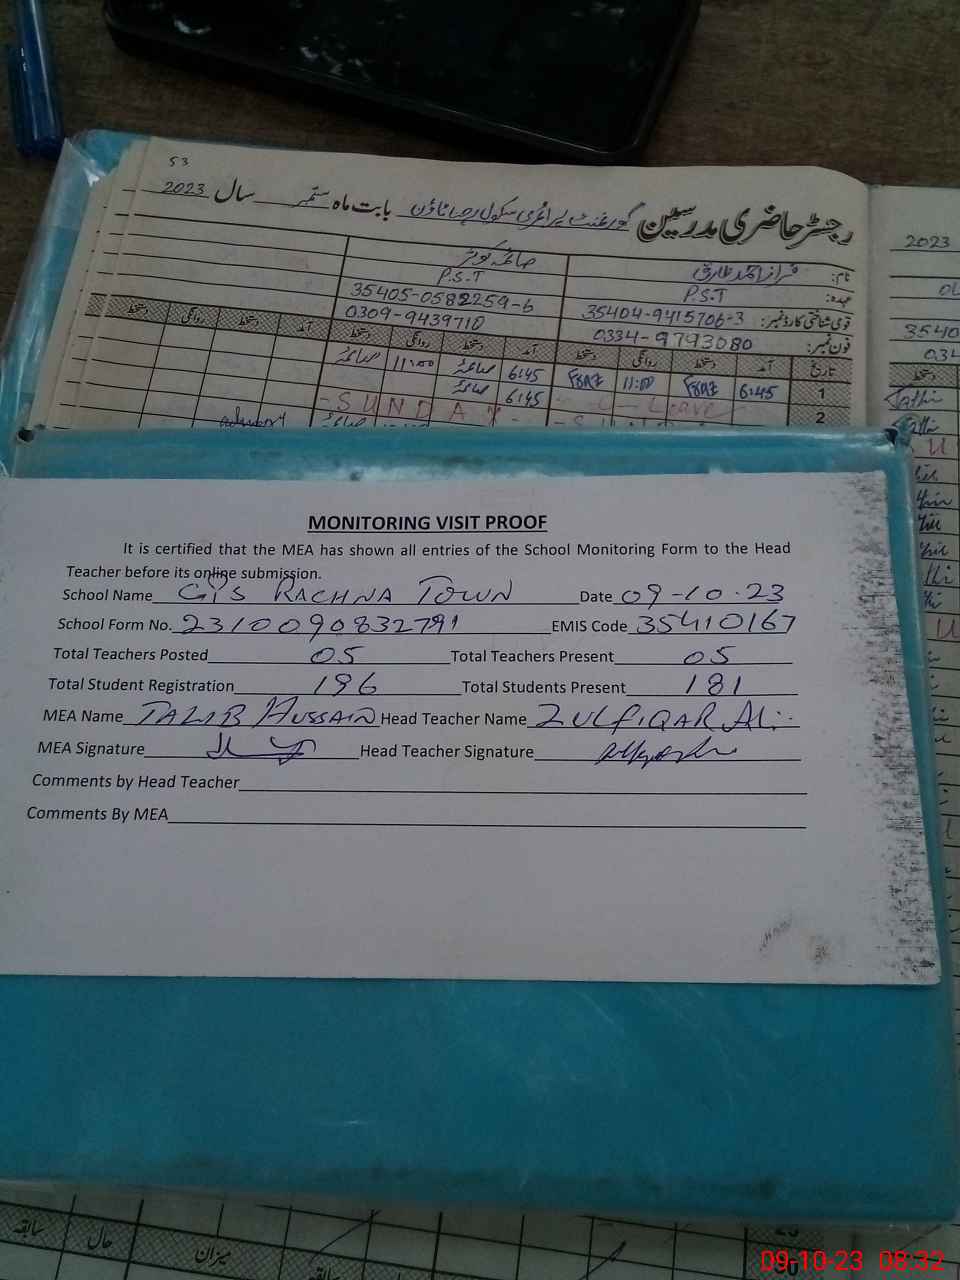 53
رجسٹر حاضری مدرسین گورنمنٹ پرائمری سکول رچنا ٹاؤن بابت ماہ ستمبر سال 2023
2023
نام: فراز احمد طارق صائمہ کوثر
عہدہ: P.S.T P.S.T
قومی شناختی کارڈ نمبر: 35404-9415706-3 35405-0582259-6
فون نمبر: 0334-9793080 0309-9439710
تاریخ آمد دستخط روانگی دستخط آمد دستخط روانگی دستخط آمد دستخط روانگی دستخط
1 6:45 FRAZ 11:00 FRAZ 6:45 صائمہ 11:00 صائمہ
2 Leave 6:45 صائمہ
- SUNDAY -
MONITORING VISIT PROOF
It is certified that the MEA has shown all entries of the School Monitoring Form to the Head
Teacher before its online submission.
School Name GPS RACHNA TOWN Date 09-10-23
School Form No. 2310090832791 EMIS Code 35410167
Total Teachers Posted 05 Total Teachers Present 05
Total Student Registration 196 Total Students Present 181
MEA Name TALIB HUSSAIN Head Teacher Name ZULFIQAR Ali
MEA Signature Head Teacher Signature
Comments by Head Teacher
Comments By MEA
میزان حال سابقہ
سابقہ
09-10-23 08:32